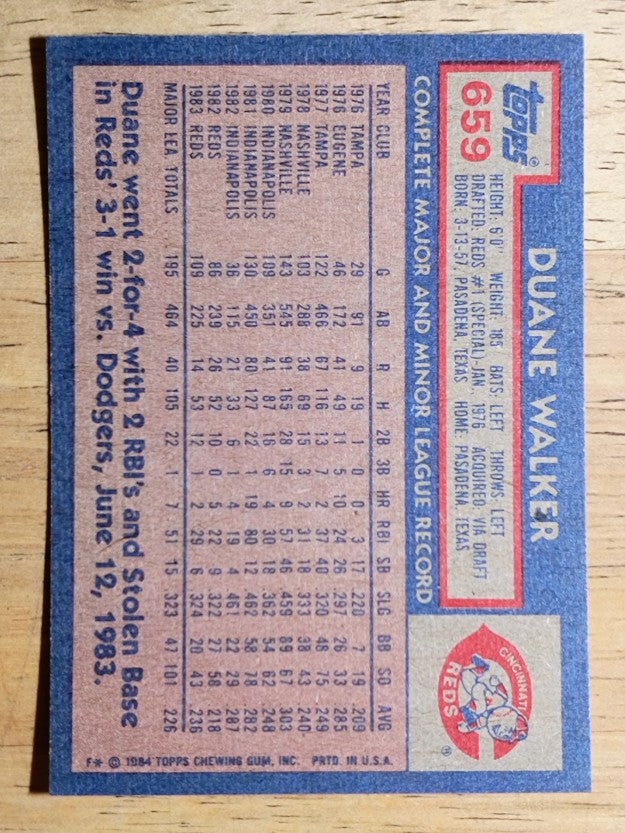 topps®
659
DUANE WALKER
HEIGHT: 6'0" WEIGHT: 185 BATS: LEFT THROWS: LEFT
DRAFTED: REDS #1 (SPECIAL)-JAN., 1976 ACQUIRED: VIA DRAFT
BORN: 3-13-57, PASADENA, TEXAS HOME: PASADENA, TEXAS
CINCINNATI
REDS ®
COMPLETE MAJOR AND MINOR LEAGUE RECORD
YEAR CLUB G AB R H 2B 3B HR RBI SB SLG BB SO AVG
1976 TAMPA 29 91 9 19 1 0 0 3 17 .220 7 19 .209
1976 EUGENE 46 172 41 49 11 5 10 24 26 .297 26 33 .285
1977 TAMPA 122 466 67 116 13 7 2 37 40 .320 48 75 .249
1978 NASHVILLE 103 288 38 69 15 3 2 31 18 .333 38 43 .240
1979 NASHVILLE 143 545 91 165 28 15 9 57 46 .459 89 67 .303
1980 INDIANAPOLIS 109 351 41 87 16 6 4 30 18 .362 54 62 .248
1981 INDIANAPOLIS 130 450 80 127 22 1 19 80 12 .462 58 78 .282
1982 INDIANAPOLIS 36 115 21 33 6 1 4 19 4 .461 22 29 .287
1982 REDS 86 239 26 52 10 0 5 22 9 .322 27 58 .218
1983 REDS 109 225 14 53 12 1 2 29 6 .324 20 43 .236
MAJOR LEA. TOTALS 195 464 40 105 22 1 7 51 15 .323 47 101 .226
Duane went 2-for-4 with 2 RBI's and Stolen Base
in Reds' 3-1 win vs. Dodgers, June 12, 1983.
F* © 1984 TOPPS CHEWING GUM, INC. PRTD. IN U.S.A.